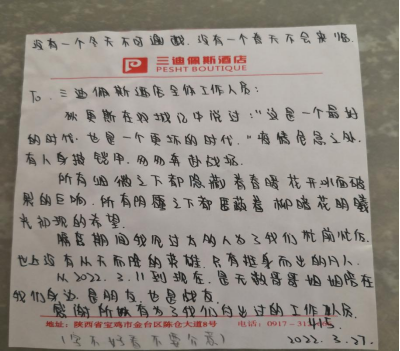 没有一个冬天不可逾越,没有一个春天不会来临.
三迪佩斯酒店
PESHT BOUTIQUE
To. 三迪佩斯酒店全体工作人员:
狄更斯在双城记中说过:"这是一个最好
的时代,也是一个更坏的时代."疫情危急之处,
有人身披铠甲,匆匆奔赴战场.
所有细微之下都隐藏着春暖花开冰面破
裂的巨响,所有阴霾之下都匿藏着柳暗花明曦
光初现的希望.
隔离期间我见过太多人为了我们忙前忙后,
世上没有从天而降的英雄,只有挺身而出的凡人.
从2022.3.11到现在,是无数哥哥姐姐陪在
我们身边,是朋友,也是战友.
感谢所有为了我们付出过的工作人员.
地址:陕西省宝鸡市金台区陈仓大道8号 电话:0917-31
415.
(字不好看 不要介意) 2022.3.27.